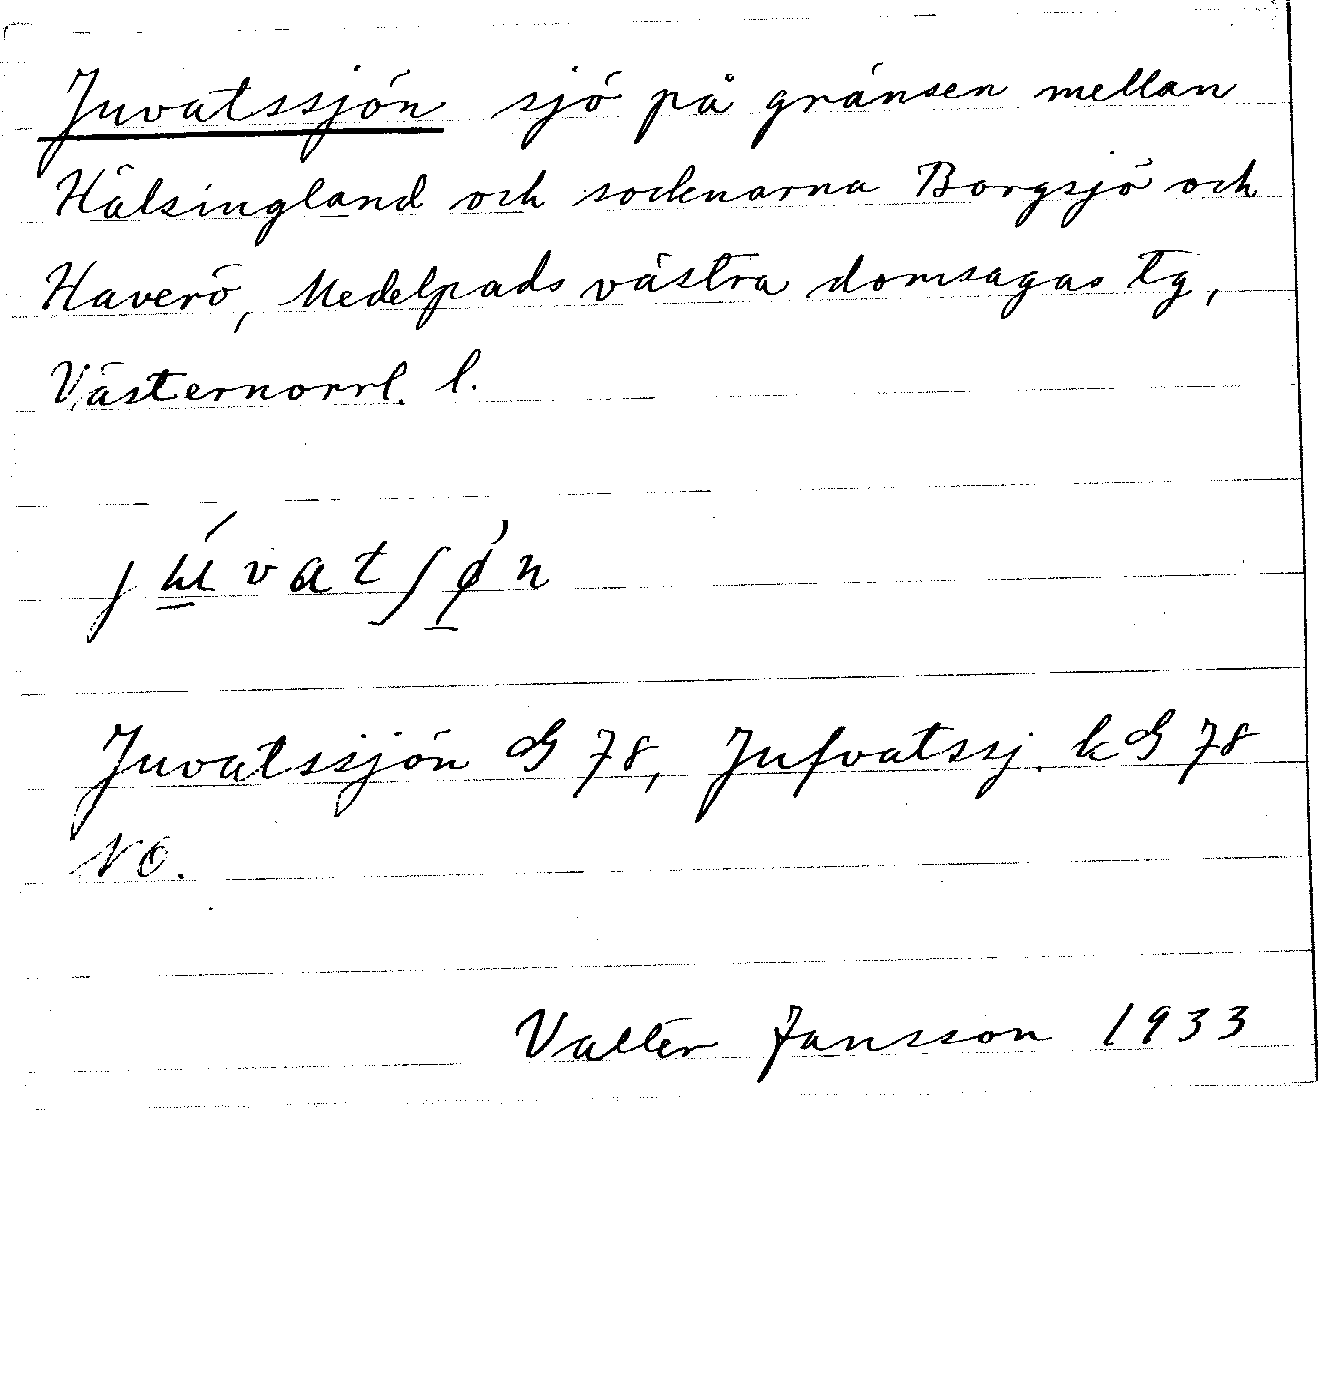 Juvatssjön sjö på gränsen mellan
Hälsingland och socknarna Borgsjö och
Haverö, Medelpads västra domsagas tg,
Västernorrl. l.
Juvatssjön G 78, Jufvatssj. kG 78
NO.
Valter Jansson 1933